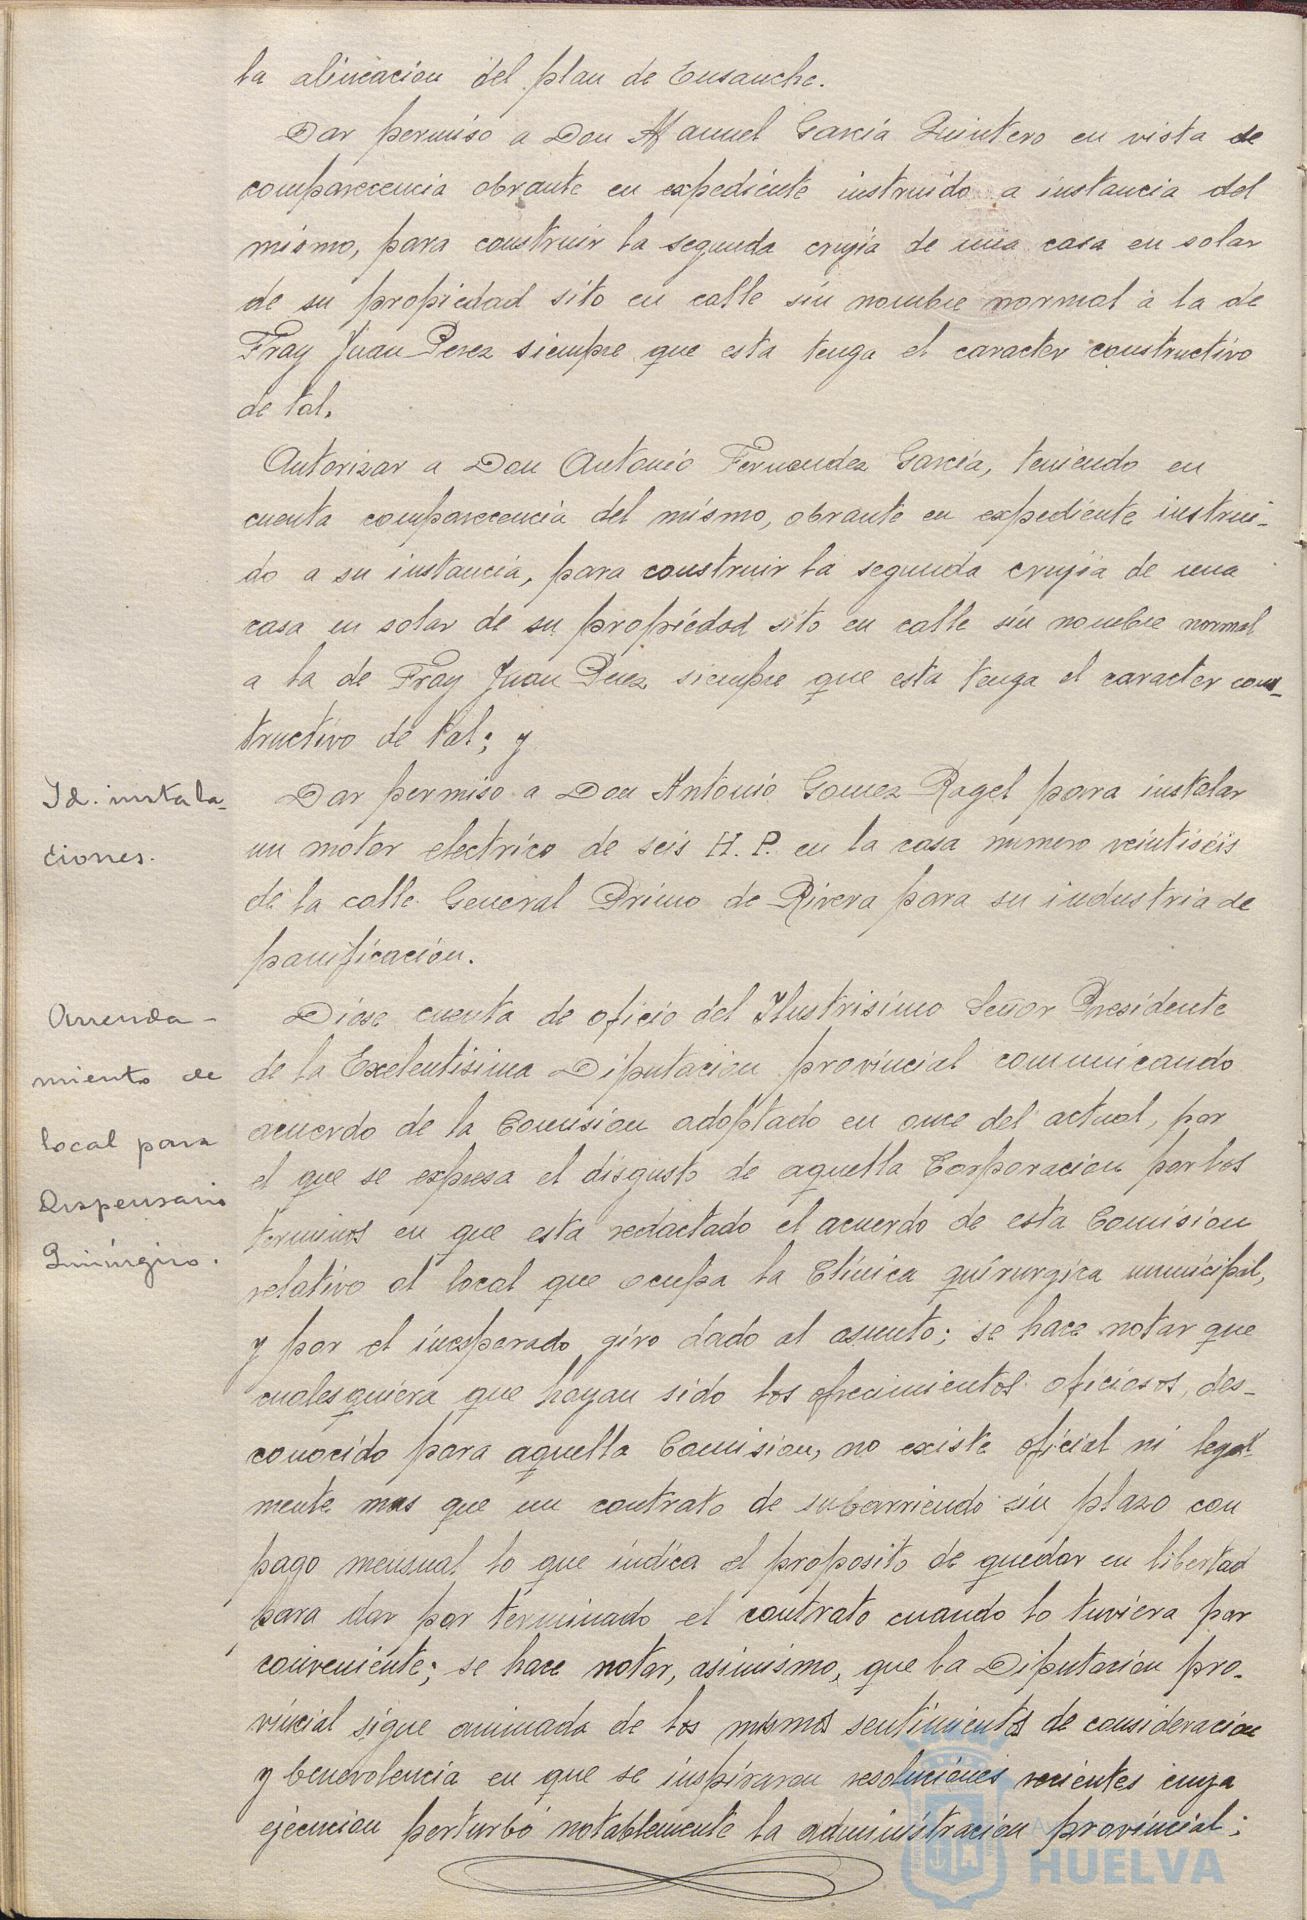 la alineacion del plan de Ensanche.
Dar permiso a Don Manuel García Quintero en vista de
comparecencia obrante en expediente instruido a instancia del
mismo, para construir la segunda crujia de una casa en solar
de su propiedad sito en calle sin nombre normal a la de
Fray Juan Perez siempre que esta tenga el caracter constructivo
de tal.
Autorizar a Don Antonio Fernandez García, teniendo en
cuenta comparecencia del mismo, obrante en expediente instrui-
do a su instancia, para construir la segunda crujia de una
casa en solar de su propiedad sito en calle sin nombre normal
a la de Fray Juan Perez siempre que esta tenga el caracter cons-
tructivo de tal; y
Id. instala-
ciones.
Dar permiso a Don Antonio Gomez Ragel para instalar
un motor electrico de seis H. P. en la casa numero veintiseis
de la calle General Primo de Rivera para su industria de
panificación.
Arrenda-
miento de
local para
Dispensario
Quirúrgico.
Diose cuenta de oficio del Ilustrisimo Señor Presidente
de la Exelentisima Diputacion provincial comunicando
acuerdo de la Comision adoptado en once del actual, por
el que se expresa el disgusto de aquella Corporacion por los
terminos en que esta redactado el acuerdo de esta Comision
relativo al local que ocupa la Clínica quirurgica municipal,
y por el inesperado giro dado al asunto; se hace notar que
cualesquiera que hayan sido los ofrecimientos oficiosos, des-
conocido para aquella Comision, no existe oficial ni legal-
mente mas que un contrato de subarriendo sin plazo con
pago mensual lo que indica el proposito de quedar en libertad
para dar por terminado el contrato cuando lo tuviera por
conveniente; se hace notar, asimismo, que la Diputacion pro-
vincial sigue animada de los mismos sentimientos de consideracion
y benevolencia en que se inspiraron resoluciones recientes cuya
ejecucion perturbó notablemente la administracion provincial;
HUELVA